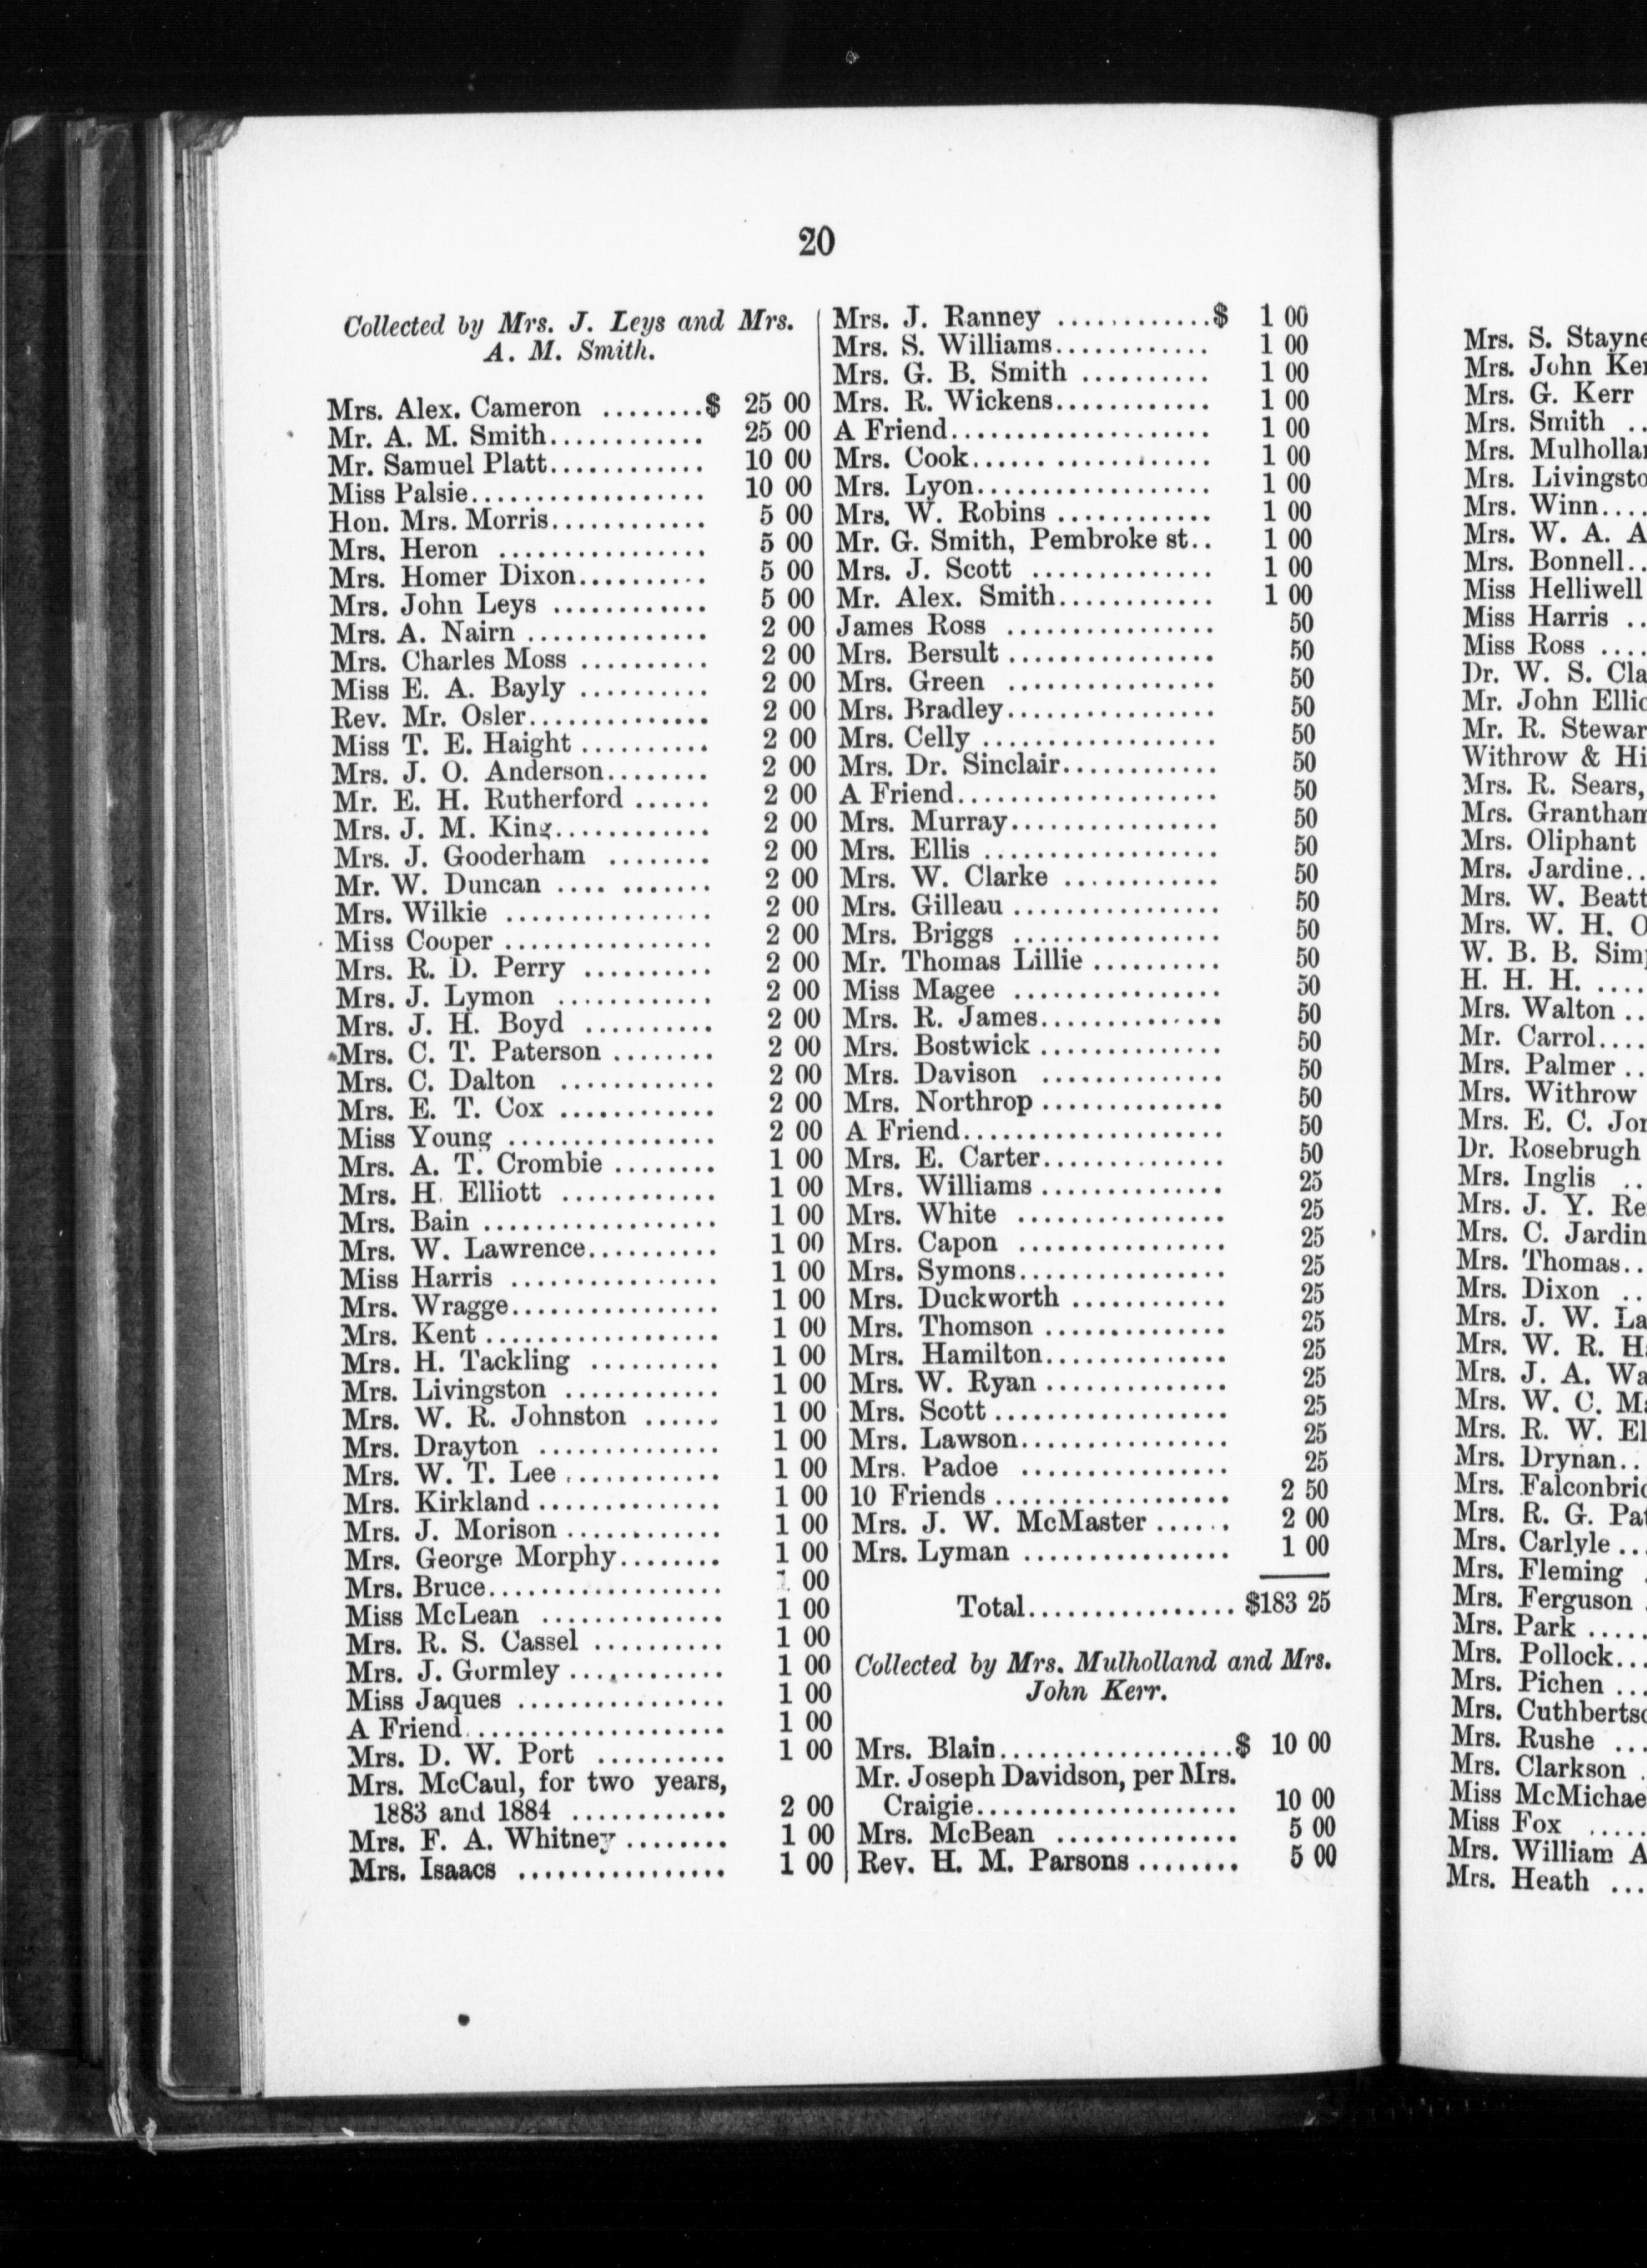 20
Collected by Mrs. J. Leys and Mrs.
A. M. Smith.
Mrs. Alex. Cameron ........$ 25 00
Mr. A. M. Smith............ 25 00
Mr. Samuel Platt............ 10 00
Miss Palsie.................. 10 00
Hon. Mrs. Morris............ 5 00
Mrs. Heron ................ 5 00
Mrs. Homer Dixon.......... 5 00
Mrs. John Leys ............ 5 00
Mrs. A. Nairn .............. 2 00
Mrs. Charles Moss .......... 2 00
Miss E. A. Bayly .......... 2 00
Rev. Mr. Osler.............. 2 00
Miss T. E. Haight .......... 2 00
Mrs. J. O. Anderson........ 2 00
Mr. E. H. Rutherford ...... 2 00
Mrs. J. M. King............ 2 00
Mrs. J. Gooderham ........ 2 00
Mr. W. Duncan .... ....... 2 00
Mrs. Wilkie ................ 2 00
Miss Cooper ................ 2 00
Mrs. R. D. Perry .......... 2 00
Mrs. J. Lymon ............ 2 00
Mrs. J. H. Boyd .......... 2 00
Mrs. C. T. Paterson ........ 2 00
Mrs. C. Dalton ............ 2 00
Mrs. E. T. Cox ............ 2 00
Miss Young ................ 2 00
Mrs. A. T. Crombie ........ 1 00
Mrs. H. Elliott ............ 1 00
Mrs. Bain .................. 1 00
Mrs. W. Lawrence.......... 1 00
Miss Harris ................ 1 00
Mrs. Wragge................ 1 00
Mrs. Kent .................. 1 00
Mrs. H. Tackling .......... 1 00
Mrs. Livingston ............ 1 00
Mrs. W. R. Johnston ...... 1 00
Mrs. Drayton .............. 1 00
Mrs. W. T. Lee ............ 1 00
Mrs. Kirkland .............. 1 00
Mrs. J. Morison ............ 1 00
Mrs. George Morphy........ 1 00
Mrs. Bruce.................. 1 00
Miss McLean .............. 1 00
Mrs. R. S. Cassel .......... 1 00
Mrs. J. Gormley ............ 1 00
Miss Jaques ................ 1 00
A Friend.................... 1 00
Mrs. D. W. Port .......... 1 00
Mrs. McCaul, for two years,
1883 and 1884 ............ 2 00
Mrs. F. A. Whitney ........ 1 00
Mrs. Isaacs ................ 1 00
Mrs. J. Ranney ............$ 1 00
Mrs. S. Williams............ 1 00
Mrs. G. B. Smith .......... 1 00
Mrs. R. Wickens............ 1 00
A Friend.................... 1 00
Mrs. Cook...... ............ 1 00
Mrs. Lyon.................. 1 00
Mrs. W. Robins ............ 1 00
Mr. G. Smith, Pembroke st.. 1 00
Mrs. J. Scott .............. 1 00
Mr. Alex. Smith............ 1 00
James Ross ................ 50
Mrs. Bersult ................ 50
Mrs. Green ................ 50
Mrs. Bradley................ 50
Mrs. Celly .................. 50
Mrs. Dr. Sinclair............ 50
A Friend.................... 50
Mrs. Murray................ 50
Mrs. Ellis .................. 50
Mrs. W. Clarke ............ 50
Mrs. Gilleau ................ 50
Mrs. Briggs ................ 50
Mr. Thomas Lillie .......... 50
Miss Magee ................ 50
Mrs. R. James.............. 50
Mrs. Bostwick .............. 50
Mrs. Davison .............. 50
Mrs. Northrop .............. 50
A Friend.................... 50
Mrs. E. Carter.............. 50
Mrs. Williams .............. 25
Mrs. White ................ 25
Mrs. Capon ................ 25
Mrs. Symons................ 25
Mrs. Duckworth ............ 25
Mrs. Thomson .............. 25
Mrs. Hamilton.............. 25
Mrs. W. Ryan .............. 25
Mrs. Scott .................. 25
Mrs. Lawson................ 25
Mrs. Padoe ................ 25
10 Friends .................. 2 50
Mrs. J. W. McMaster ...... 2 00
Mrs. Lyman ................ 1 00
Total................ $183 25
Collected by Mrs. Mulholland and Mrs.
John Kerr.
Mrs. Blain..................$ 10 00
Mr. Joseph Davidson, per Mrs.
Craigie.................... 10 00
Mrs. McBean .............. 5 00
Rev. H. M. Parsons ........ 5 00
Mrs. S. Stayne
Mrs. John
Mrs. G. Kerr
Mrs. Smith ..
Mrs.
Mrs.
Mrs. Winn....
Mrs. W. A.
Mrs. Bonnell..
Miss Helliwell
Miss Harris ..
Miss Ross ....
Dr. W. S.
Mr. John
Mr. R.
Withrow &
Mrs. R. Sears,
Mrs. Grantham
Mrs. Oliphant
Mrs. Jardine..
Mrs. W.
Mrs. W. H.
W. B. B.
H. H. H. ....
Mrs. Walton ..
Mr. Carrol....
Mrs. Palmer ..
Mrs. Withrow
Mrs. E. C.
Dr. Rosebrugh
Mrs. Inglis ..
Mrs. J. Y.
Mrs. C.
Mrs. Thomas..
Mrs. Dixon ..
Mrs. J. W.
Mrs. W. R.
Mrs. J. A.
Mrs. W. C.
Mrs. R. W.
Mrs. Drynan..
Mrs.
Mrs. R. G.
Mrs. Carlyle ...
Mrs. Fleming .
Mrs. Ferguson .
Mrs. Park .....
Mrs. Pollock...
Mrs. Pichen ...
Mrs.
Mrs. Rushe ...
Mrs. Clarkson .
Miss
Miss Fox .....
Mrs. William
Mrs. Heath ...